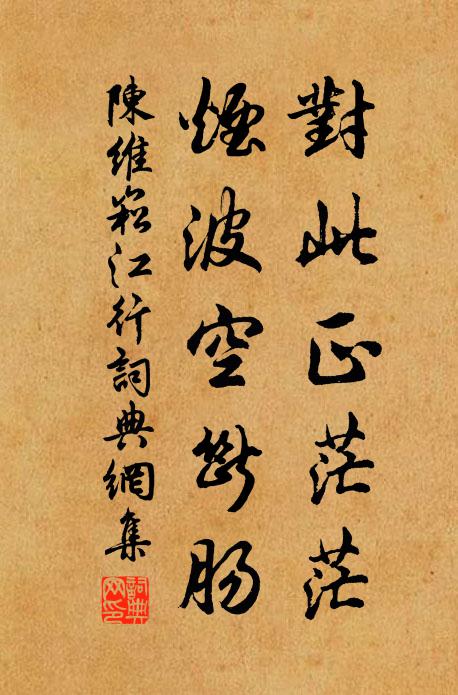 對此正茫茫
煙波空斷腸
陳維崧江行詞典網集
詞典網印